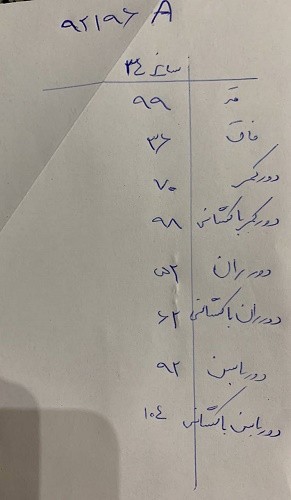 ۹۲۱۹۶ A
سایز ۳۴
قد ۹۹
فاق ۳۶
دور کمر ۷۰
دور کمر با کشسانی ۹۸
دور ران ۵۲
دور ران با کشسانی ۶۲
دور باسن ۹۲
دور باسن با کشسانی ۱۰۴